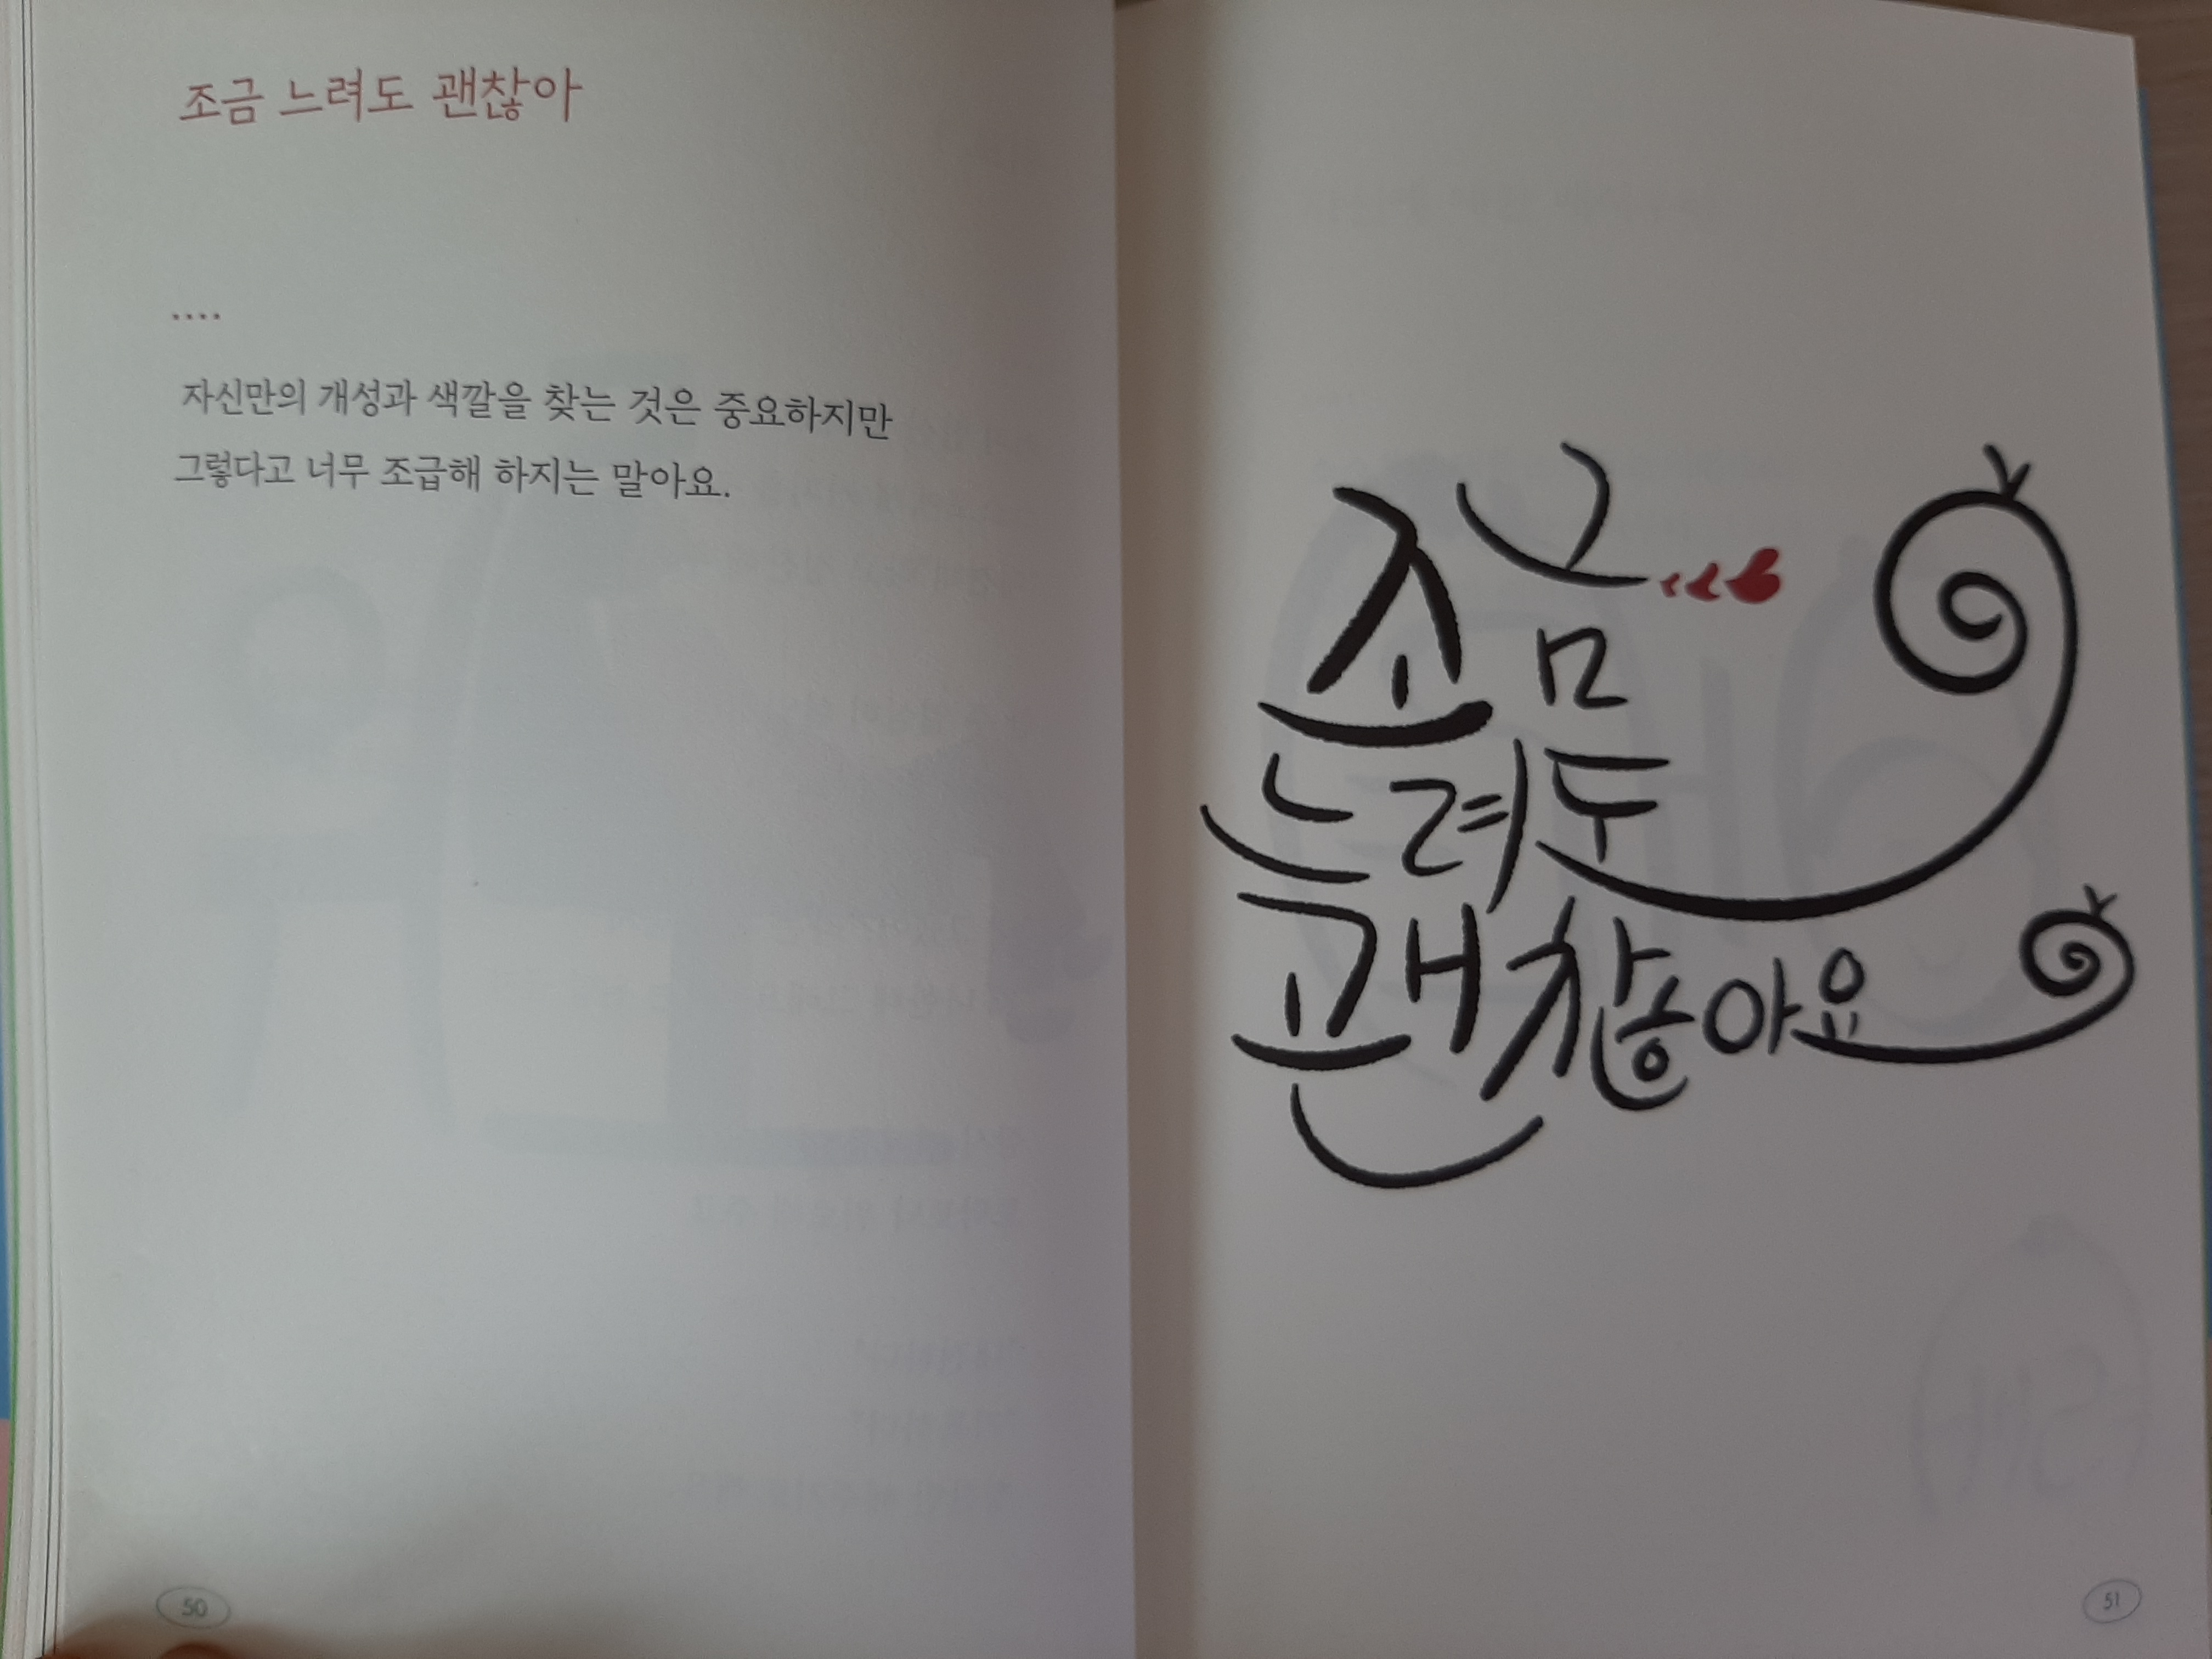 조금 느려도 괜찮아
....
자신만의 개성과 색깔을 찾는 것은 중요하지만
그렇다고 너무 조급해 하지는 말아요.
50
조금
느려도
괜찮아요
51